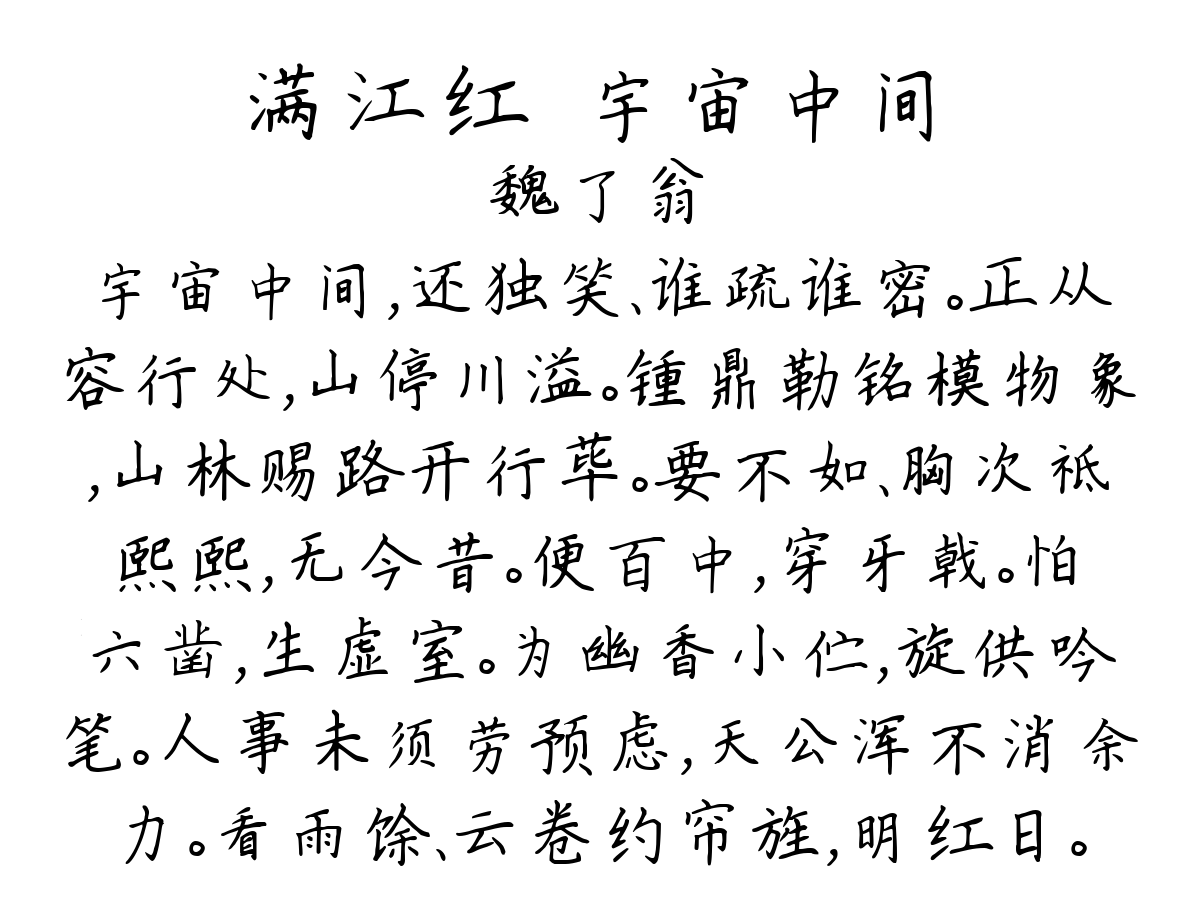 满江红 宇宙中间
魏了翁
宇宙中间,还独笑、谁疏谁密。正从
容行处,山停川溢。锺鼎勒铭模物象
,山林赐路开行荜。要不如、胸次祗
熙熙,无今昔。便百中,穿牙戟。怕
六凿,生虚室。为幽香小伫,旋供吟
笔。人事未须劳预虑,天公浑不消余
力。看雨馀、云卷约帘旌,明红日。